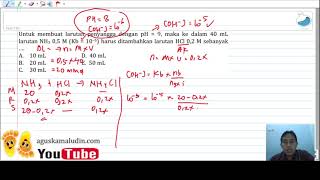 PH = 8
[OH-] = 10⁻⁶
[OH-] = 10⁻⁵ ✓
Untuk membuat larutan penyangga dengan pH = 9, maka ke dalam 40 mL
larutan NH₃ 0,5 M (Kb = 10⁻⁵) harus ditambahkan larutan HCl 0,2 M sebanyak
A. 10 mL D. 40 mL
B. 20 mL
C. 30 mL
n = M x V
= 0,2x
= 20 mmol
NH₃ + HCl → NH₄Cl
M 20 0,2x -
R 0,2x 0,2x 0,2x
S 20-0,2x - 0,2x
[OH-] = Kb x nb
10⁻⁵ = 10⁻⁵ x 20-0,2x
0,2x
aguskamaludin.com
YouTube